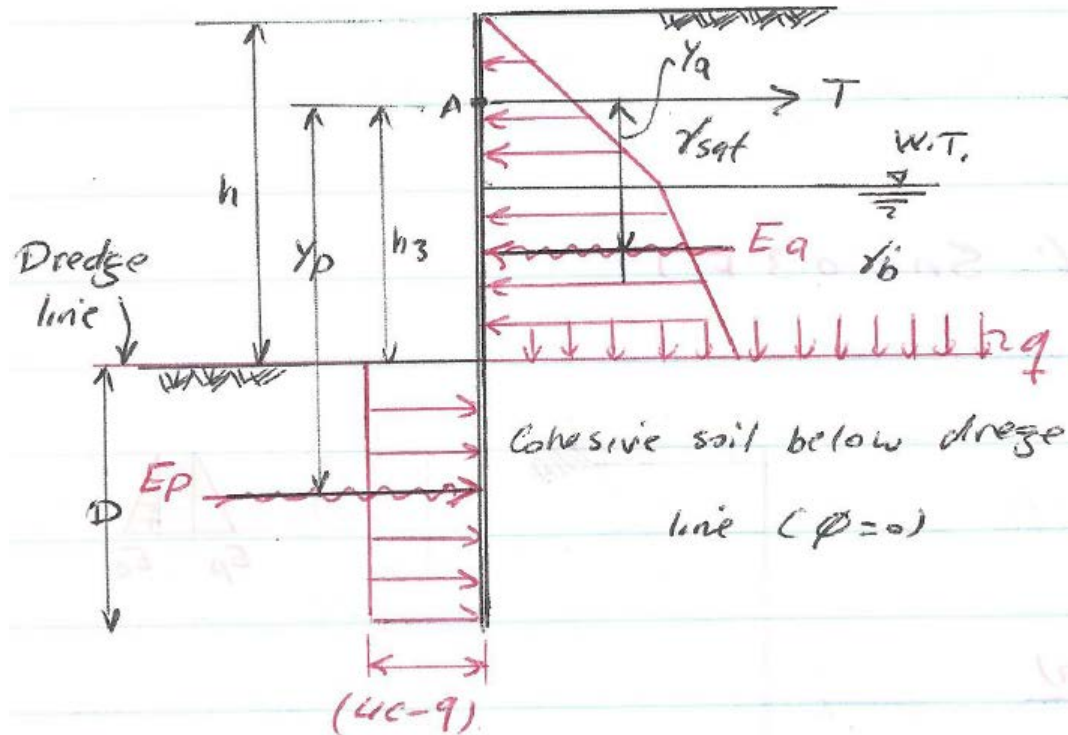 Ya
A
T
γsat
W.T.
h
Yp
h3
Ea
γb
Dredge
line
q
Cohesive soil below drege
line (φ=0)
Ep
D
(4c-q)